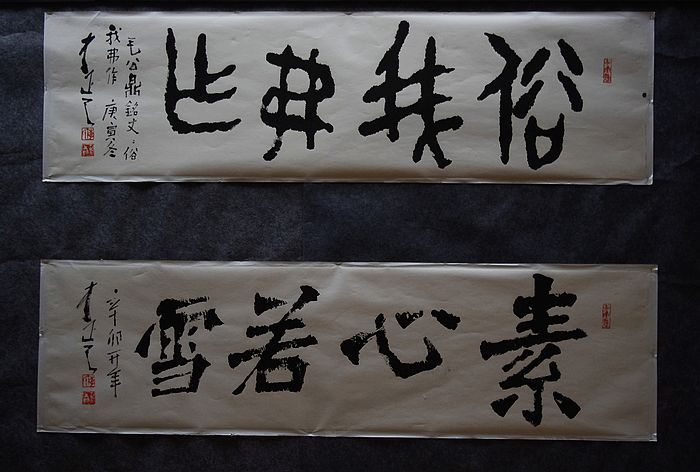 俗我弗作
毛公鼎銘文：俗
我弗作 庚寅冬
素心若雪
辛卯開年